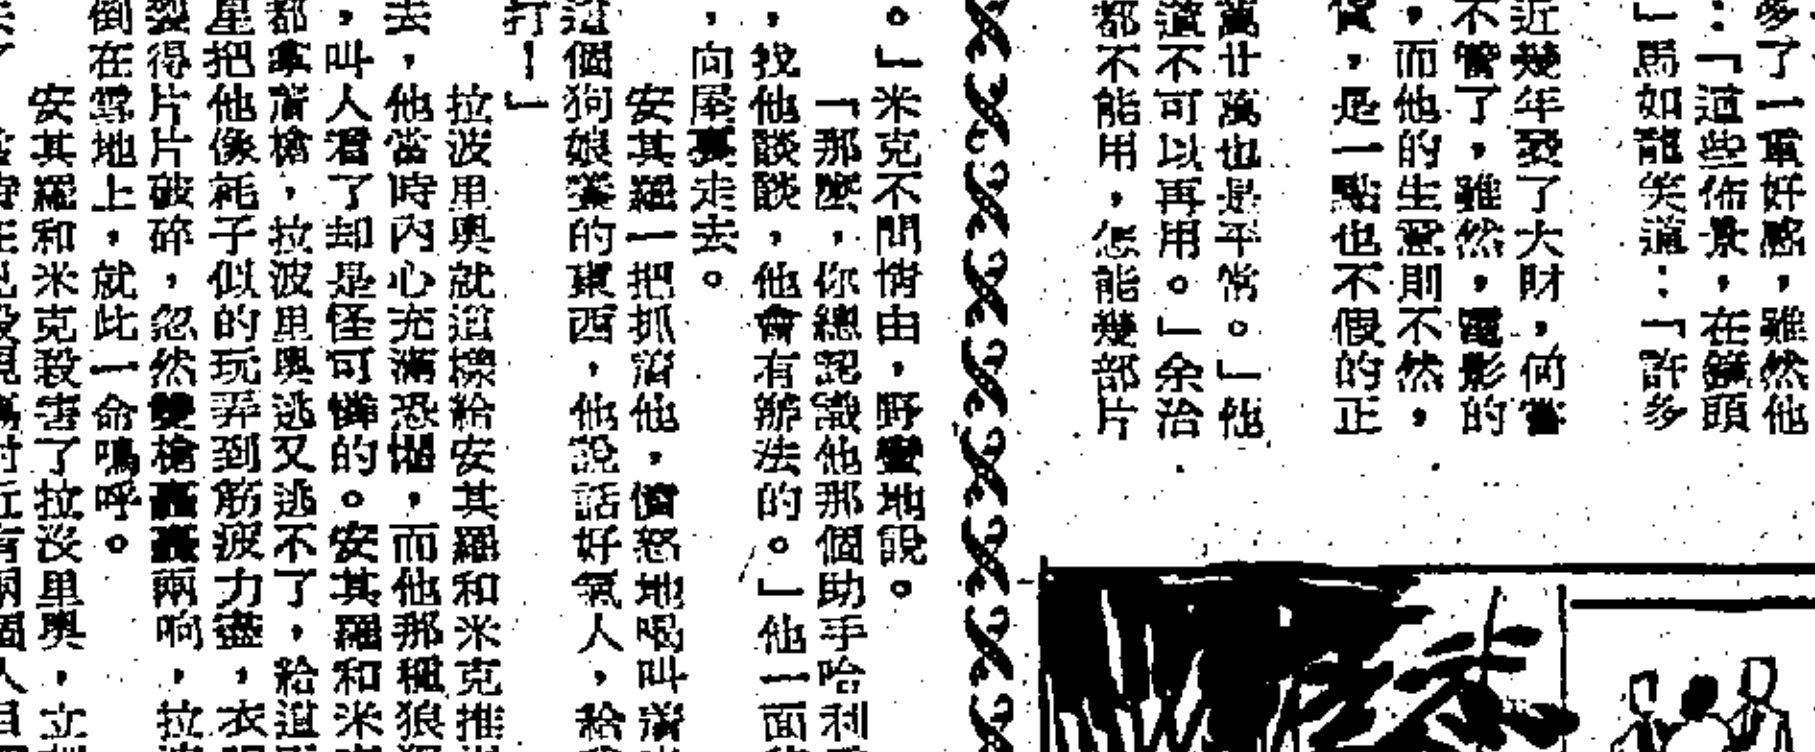 多了一重好感，雖然他
：「這些佈景，在鏡頭
」馬如龍笑道：「許多
近幾年發了大財，何嘗
不管了，雖然，電影的
，而他的生意則不然，
貨，是一點也不假的正
萬廿萬也是平常。」他
道不可以再用。」余洽
都不能用，怎能幾部片
。」米克不問情由，野蠻地說。
「那麼，你總記識他那個助手哈利
，找他談談，他會有辦法的。」他一面
，向屋裏走去。
安其羅一把抓溜他，憤怒地喝叫溜
這個狗娘養的東西，他說話好氣人，給
打！」
拉波里奧就這樣給安其羅和米克推
去，他當時內心充滿恐懼，而他那種狼
，叫人看了却是怪可憐的。安其羅和米
都拿溜槍，拉波里奧逃又逃不了，給這
星把他像耗子似的玩弄到筋疲力盡，衣
裂得片片破碎，忽然雙槍轟轟兩响，拉
倒在雪地上，就此一命嗚呼。
安其羅和米克殺害了拉波里奧，立